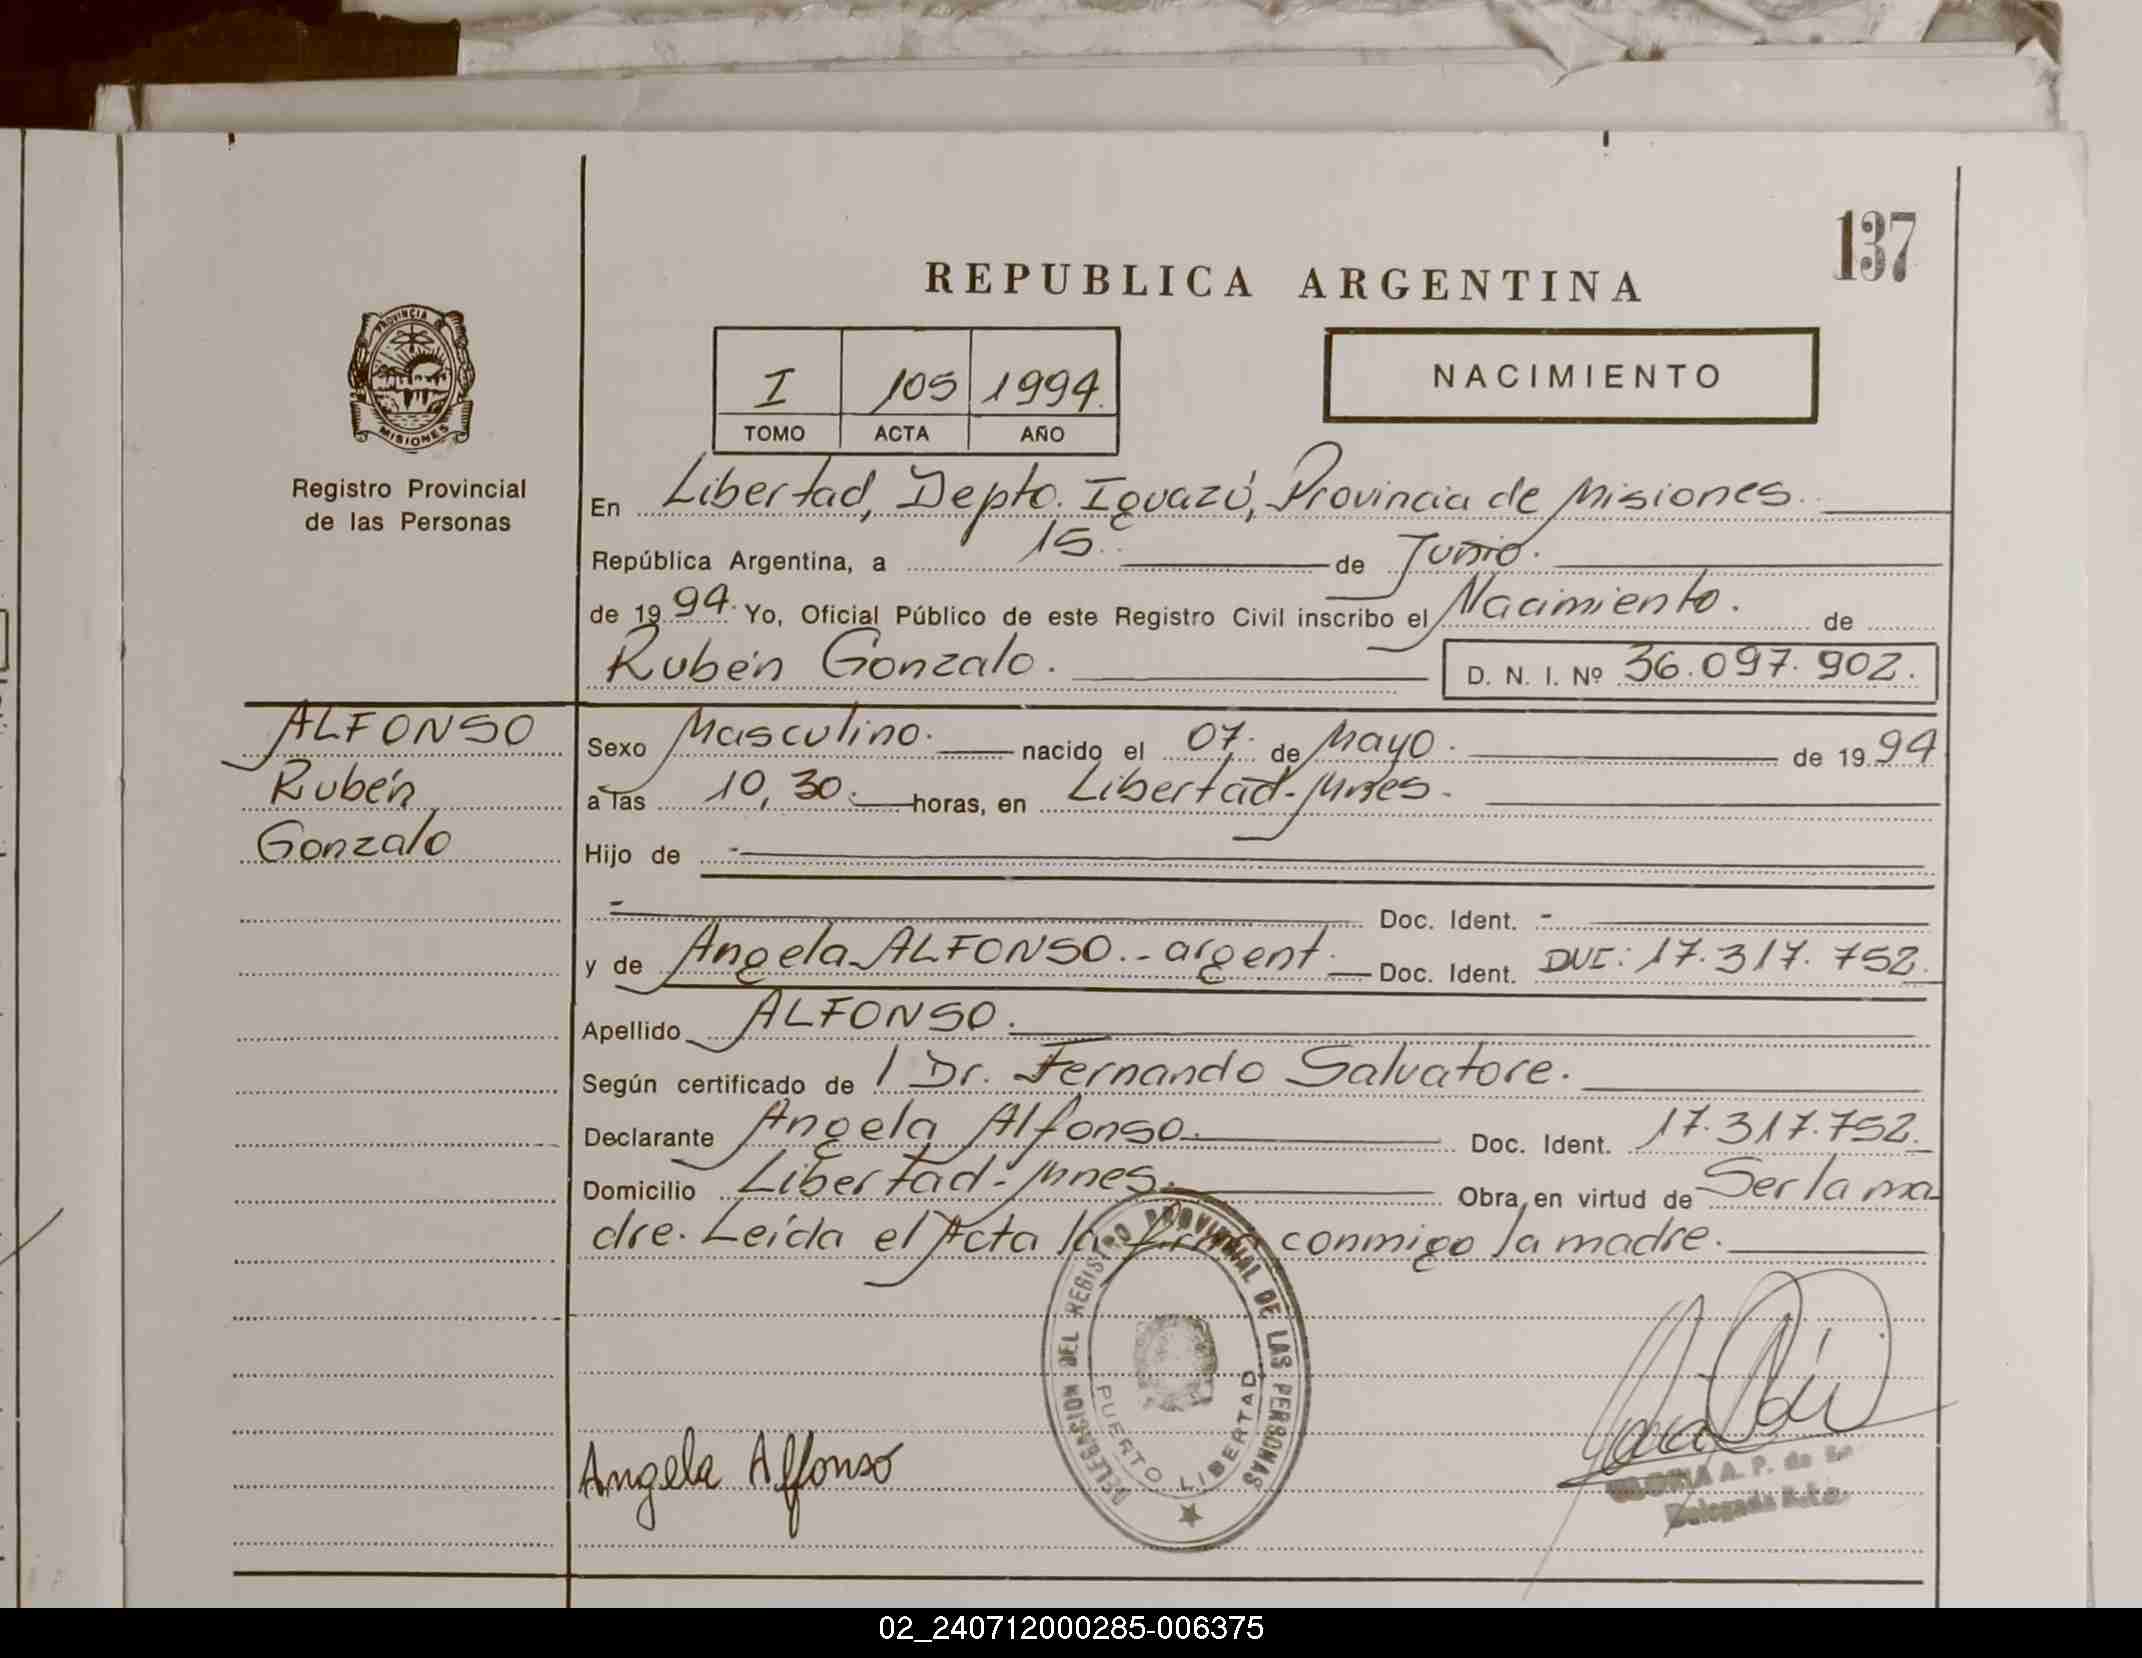 137
REPUBLICA ARGENTINA
PROVINCIA DE
MISIONES
Registro Provincial
de las Personas
I 105 1994.
TOMO ACTA AÑO
NACIMIENTO
En Libertad, Depto. Iguazú, Provincia de Misiones.
República Argentina, a 15. de Junio.
de 1994. Yo, Oficial Público de este Registro Civil inscribo el Nacimiento. de
Rubén Gonzalo. D. N. I. Nº 36.097.902.
ALFONSO
Rubén
Gonzalo
Sexo Masculino. nacido el 07. de Mayo. de 1994
a las 10,30. horas, en Libertad-Mnes.
Hijo de -
- Doc. Ident. -
y de Angela ALFONSO.- argent. Doc. Ident. DUI: 17.317.752.
Apellido ALFONSO.
Según certificado de / Dr. Fernando Salvatore.
Declarante Angela Alfonso. Doc. Ident. 17.317.752.
Domicilio Libertad-Mnes. Obra, en virtud de Ser la ma
dre. Leída el Acta la firma conmigo la madre.
DELEGACION DEL REGISTRO PROVINCIAL DE LAS PERSONAS
PUERTO LIBERTAD
Angela Alfonso
A. P. de
Delegada
02_240712000285-006375